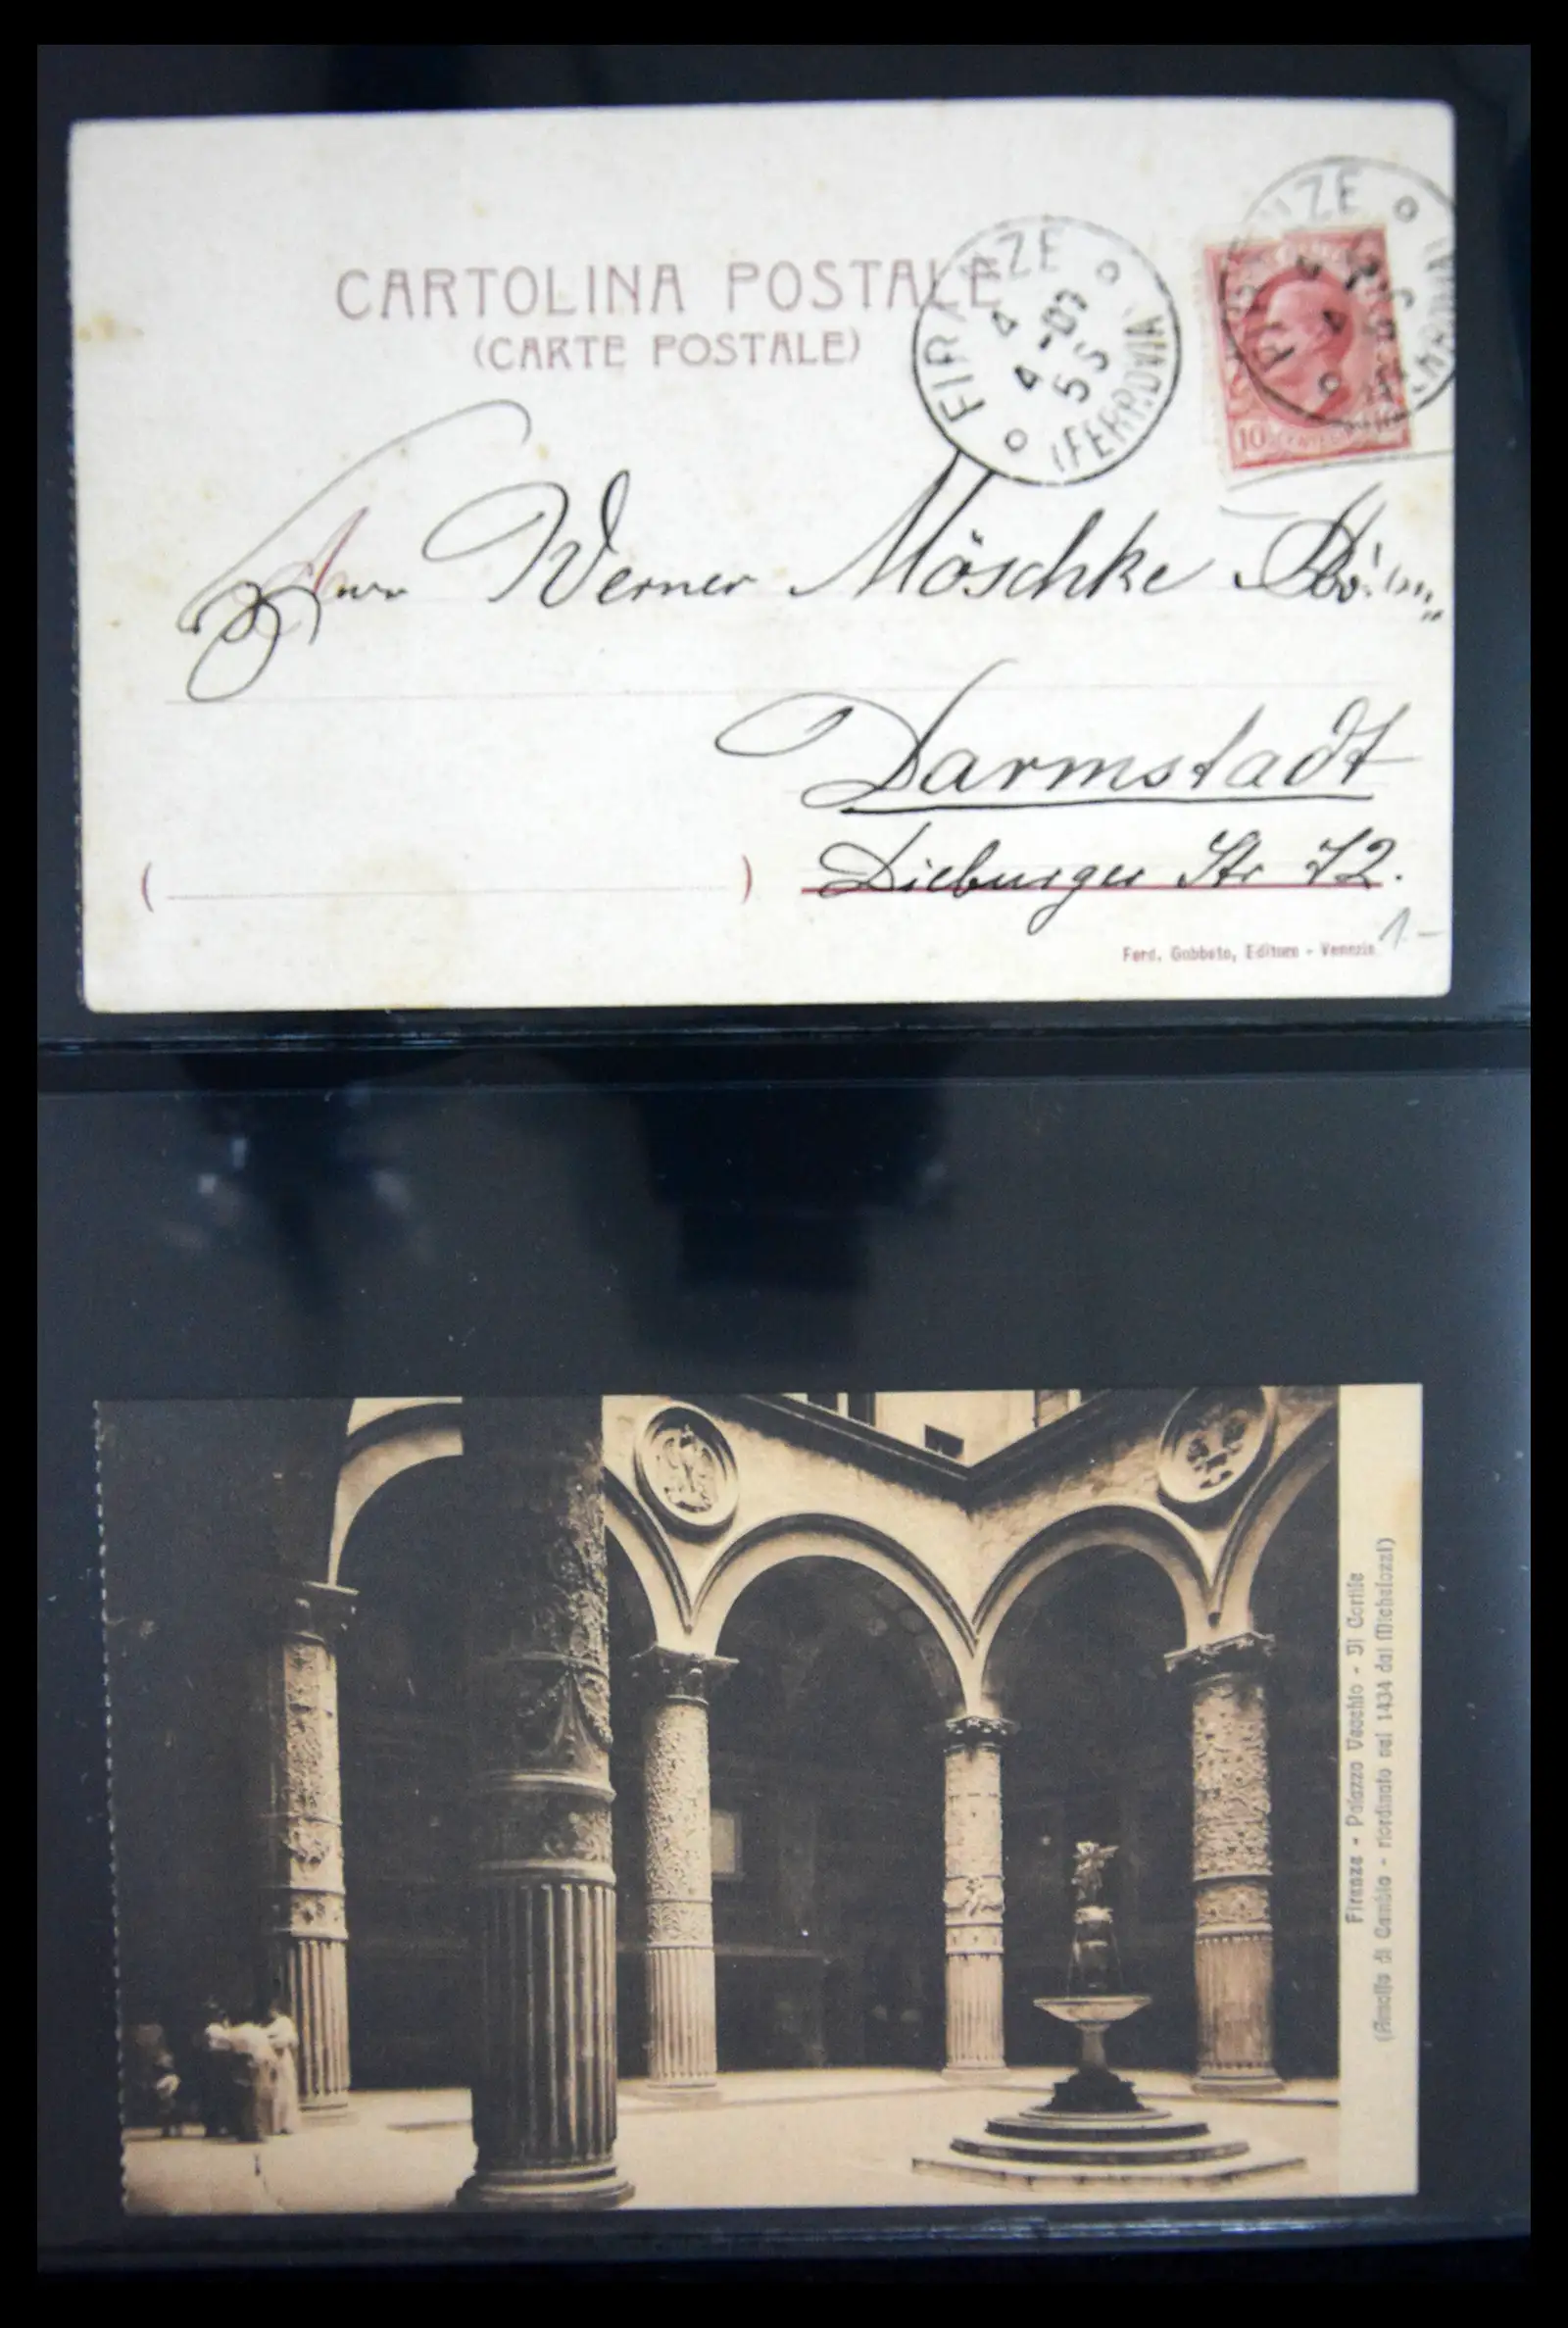 CARTOLINA POSTALE
(CARTE POSTALE)
FIRENZE
4
4-07
5 S
(FERROVIA)
FIRENZE
10
Herrn Werner Möschke
Darmstadt
Dieburger Str 72.
( )
Ferd. Gobbato, Editore - Venezia
1.-
Firenze - Palazzo Vecchio - Il Cortile
(Arnolfo di Cambio - riordinato nel 1434 dal Michelozzi)